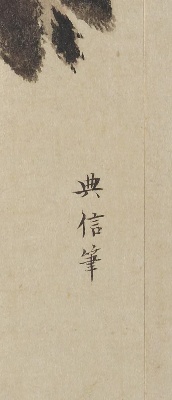 典信筆